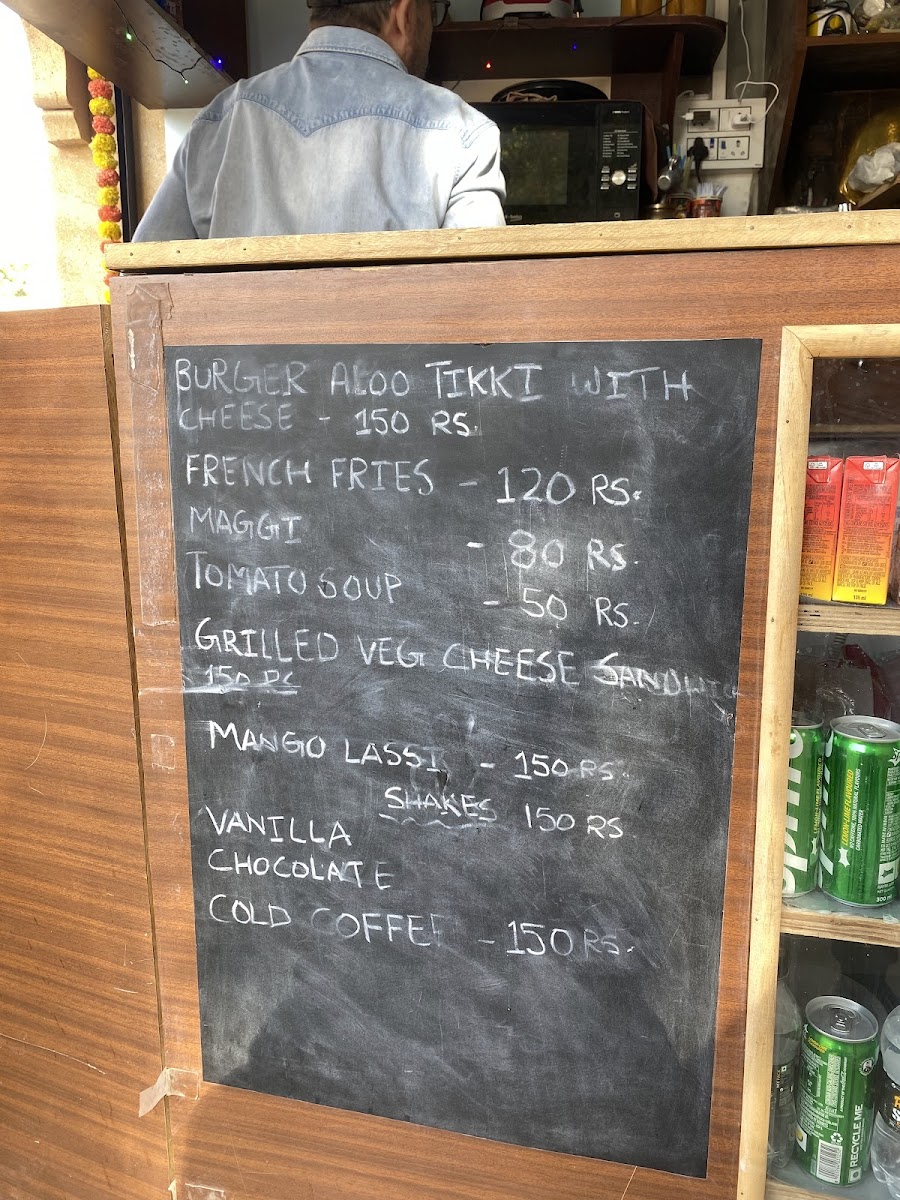 BURGER ALOO TIKKI WITH
CHEESE - 150 RS.
FRENCH FRIES - 120 RS.
MAGGI - 80 RS.
TOMATO SOUP - 50 RS.
GRILLED VEG CHEESE SANDWIC
150 RS
MANGO LASSI - 150 RS.
SHAKES 150 RS
VANILLA
CHOCOLATE
COLD COFFEE - 150 RS.
sprite
LEMON-LIME FLAVOURED
300 ml
RECYCLE ME